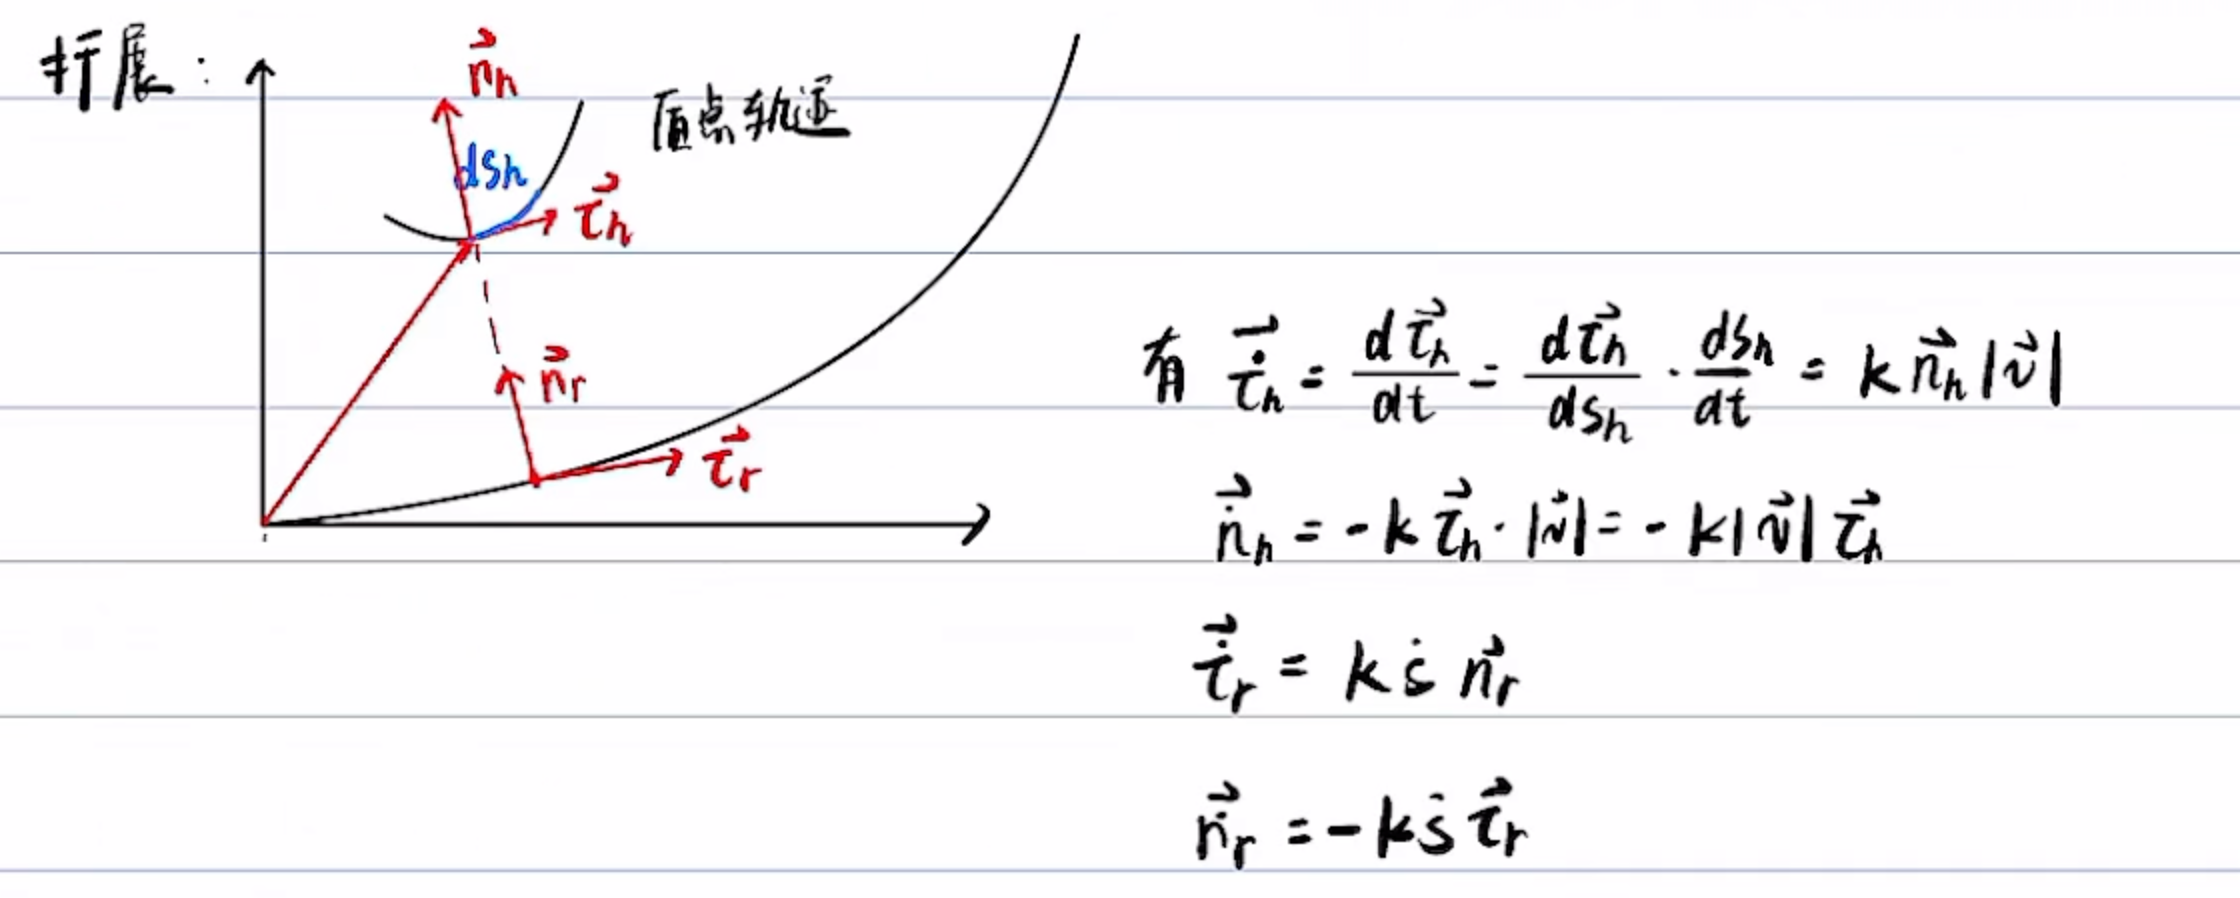 扩展:
n⃗ₕ
dsₕ
质点轨迹
τ⃗ₕ
n⃗ᵣ
τ⃗ᵣ
有 τ⃗̇ₕ = dτ⃗ₕ/dt = dτ⃗ₕ/dsₕ · dsₕ/dt = k n⃗ₕ |v⃗|
n⃗̇ₕ = -k τ⃗ₕ · |v⃗| = -k|v⃗| τ⃗ₕ
τ⃗̇ᵣ = k ṡ n⃗ᵣ
n⃗̇ᵣ = -k ṡ τ⃗ᵣ